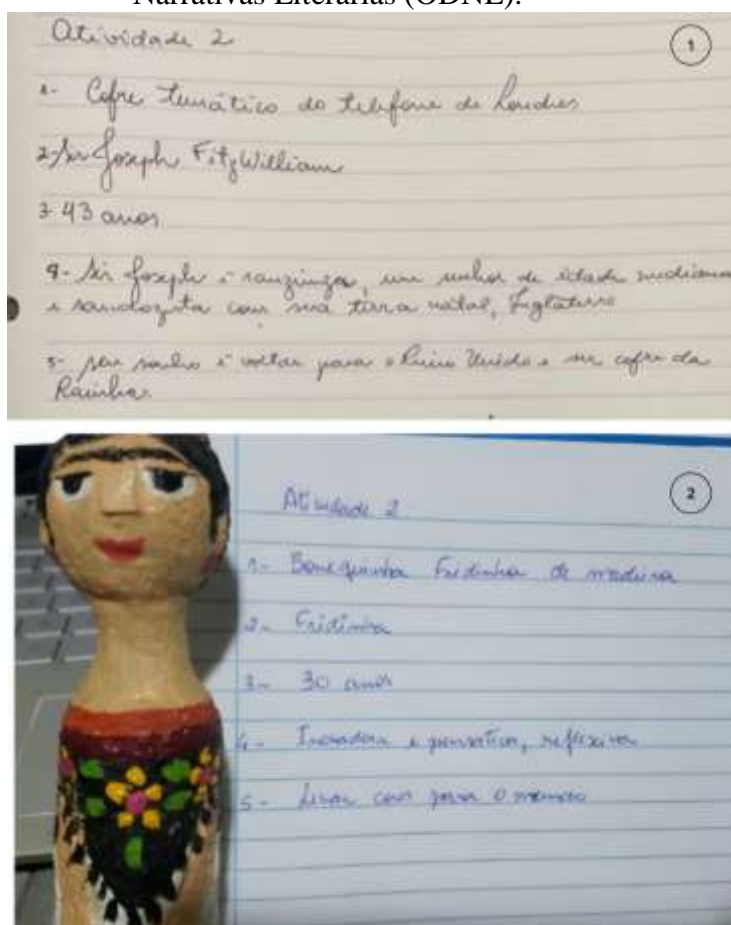 Narrativas Literárias (ODNE).
Atividade 2
1
1- Cofre temático do telefone de Londres
2- Sir Joseph FitzWilliam
3- 43 anos
4- Sir Joseph é ranzinza, um senhor de idade mediana
e saudosista com sua terra natal, Inglaterra
5- seu sonho é voltar para o Reino Unido e ser cofre da
Rainha.
2
Atividade 2
1- Bonequinha Fridinha de madeira
2- Fridinha
3- 30 anos
4- Inovadora e pensativa, reflexiva
5- Levar cor para o mundo